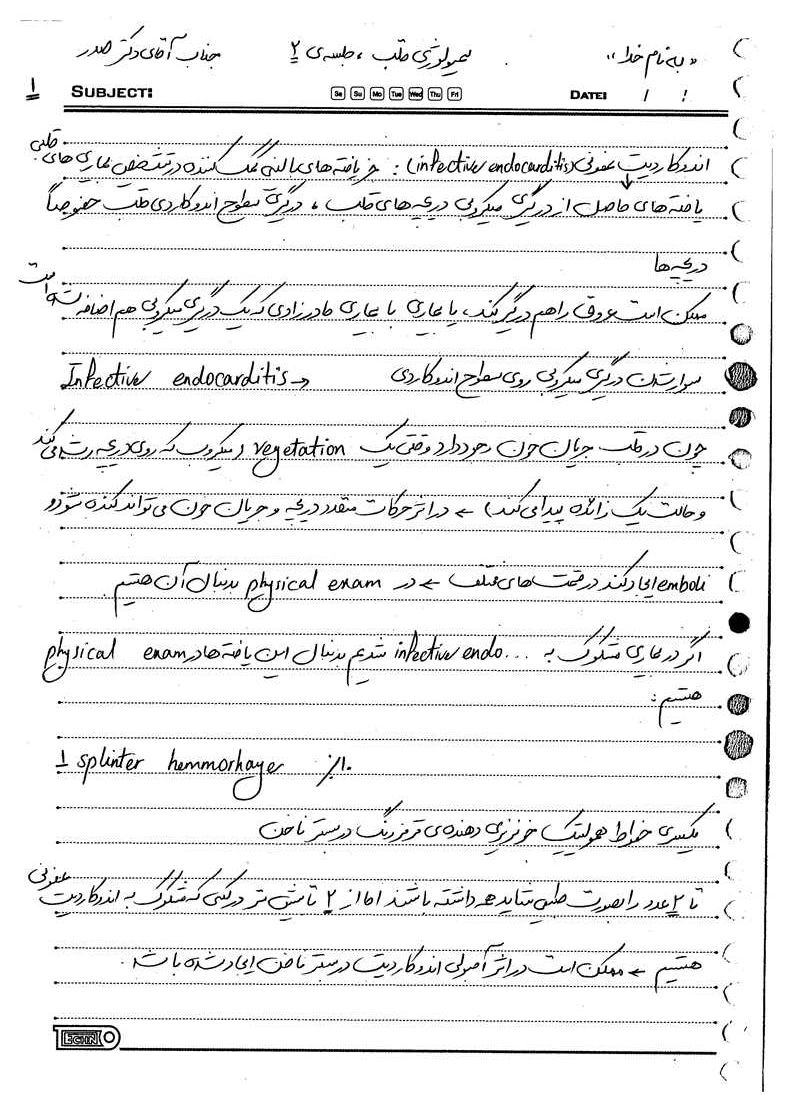 «به نام خدا» سمیولوژی قلب، جلسه‌ی ۲ جناب آقای دکتر صدر
۱ SUBJECT: Sa Su Mo Tue Wed Thu Fri DATE: / /
اندوکاردیت عفونی (infective endocarditis): جز یافته‌های بالینی کمک کننده در تشخیص بیماری های قلبی
یافته های حاصل از درگیری میکروبی دریچه های قلب، درگیری سطوح اندوکاردی قلب خصوصاً
دریچه ها
ممکن است عروق را هم درگیر کند، یا بیماری با بیماری مادرزادی که یک درگیری میکروبی هم اضافه شده است
سوار شدن درگیری میکروبی روی سطوح اندوکاردی → Infective endocarditis
چون در قلب جریان خون وجود دارد وقتی یک vegetation (میکروب که روی دریچه رشد می کند
و حالت یک زائده پیدا می کند) ← در اثر حرکات متعدد دریچه و جریان خون می تواند کنده شود و
emboli ایجاد کند در قسمت های مختلف ← در physical exam بدنبال آن هستیم.
اگر در بیماری مشکوک به infective endo... شدیم بدنبال این یافته ها در physical exam
هستیم:
1 splinter hemmorhage ۱۰٪
یکسری خطوط همولیتیک خونریزی دهنده ی قرمز رنگ در بستر ناخن
تا ۲ عدد را بصورت طبیعی شاید همه داشته باشند اما از ۲ تا بیش تر در کسی که مشکوک به اندوکاردیت عفونی
هستیم ← ممکن است در اثر آمبولی اندوکاردیت در بستر ناخن ایجاد شده باشد.
ECHIN